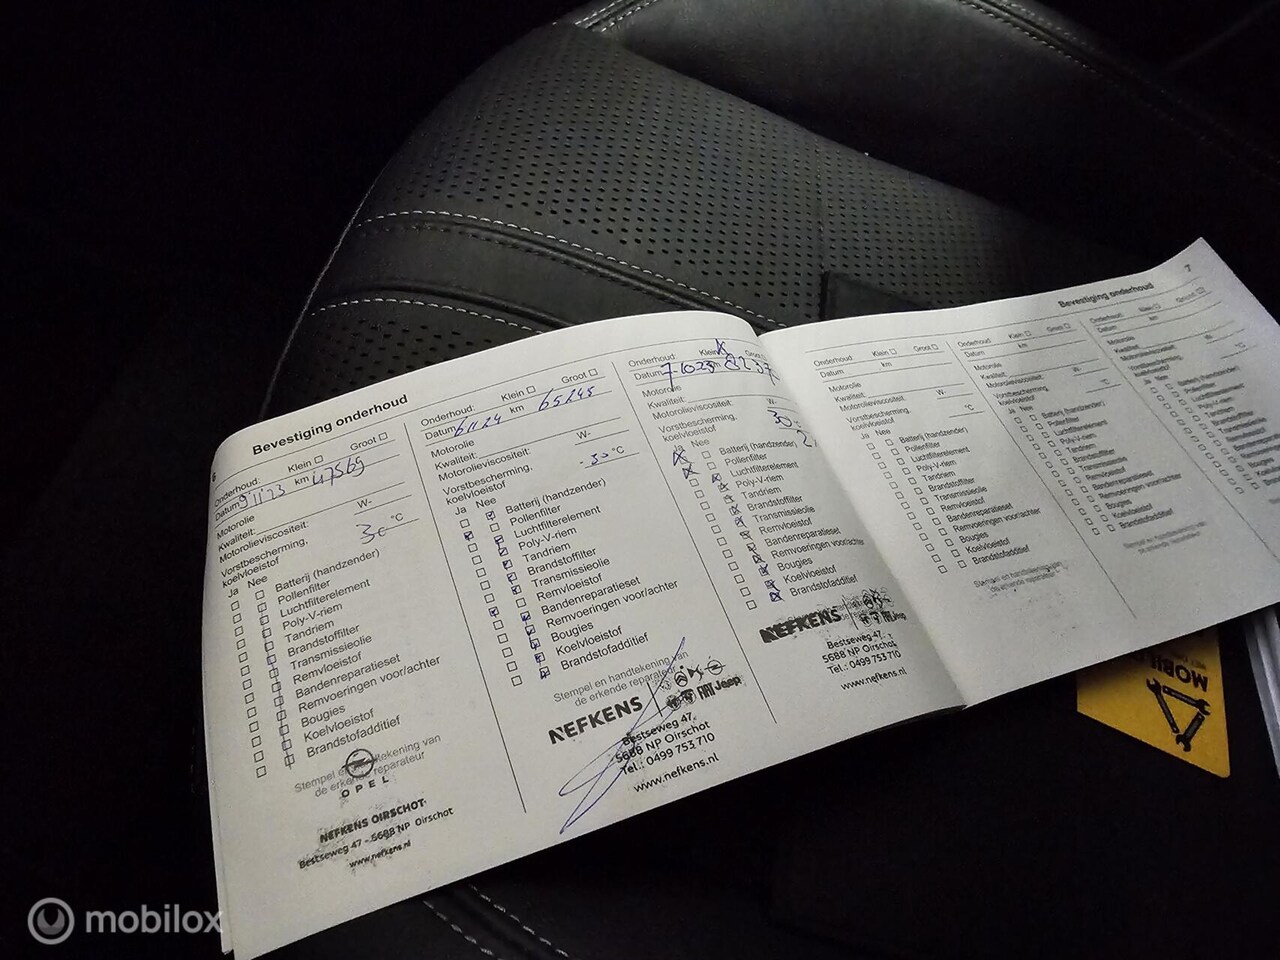 6
Bevestiging onderhoud
Onderhoud: Klein Groot
Datum 9 11 23 km 47569
Motorolie
Kwaliteit: W-
Motorolieviscositeit:
Vorstbescherming, 30 °C
koelvloeistof
Ja Nee
Batterij (handzender)
Pollenfilter
Luchtfilterelement
Poly-V-riem
Tandriem
Brandstoffilter
Transmissieolie
Remvloeistof
Bandenreparatieset
Remvoeringen voor/achter
Bougies
Koelvloeistof
Brandstofadditief
Stempel en handtekening van
de erkende reparateur
OPEL
NEFKENS OIRSCHOT
Bestseweg 47 - 5688 NP Oirschot
www.nefkens.nl
Onderhoud: Klein Groot
Datum 6 11 24 km 65245
Motorolie
Kwaliteit: W-
Motorolieviscositeit:
Vorstbescherming, -30 °C
koelvloeistof
Ja Nee
Batterij (handzender)
Pollenfilter
Luchtfilterelement
Poly-V-riem
Tandriem
Brandstoffilter
Transmissieolie
Remvloeistof
Bandenreparatieset
Remvoeringen voor/achter
Bougies
Koelvloeistof
Brandstofadditief
Stempel en handtekening van
de erkende reparateur
NEFKENS
Jeep
Bestseweg 47
5688 NP Oirschot
Tel.: 0499 753 710
www.nefkens.nl
Onderhoud: Klein Groot
Datum
Motorolie
Kwaliteit: W-
Motorolieviscositeit:
Vorstbescherming, 30
koelvloeistof
Ja Nee
Batterij (handzender)
Pollenfilter
Luchtfilterelement
Poly-V-riem
Tandriem
Brandstoffilter
Transmissieolie
Remvloeistof
Bandenreparatieset
Remvoeringen voor/achter
Bougies
Koelvloeistof
Brandstofadditief
NEFKENS
Bestseweg 47
5688 NP Oirschot
Tel.: 0499 753 710
www.nefkens.nl
Bevestiging onderhoud
7
Onderhoud: Klein Groot
Datum km
Motorolie
Kwaliteit: W-
Motorolieviscositeit:
Vorstbescherming, °C
koelvloeistof
Ja Nee
Batterij (handzender)
Pollenfilter
Luchtfilterelement
Poly-V-riem
Tandriem
Brandstoffilter
Transmissieolie
Remvloeistof
Bandenreparatieset
Remvoeringen voor/achter
Bougies
Koelvloeistof
Brandstofadditief
Stempel en handtekening van
de erkende reparateur
Onderhoud: Klein Groot
Datum km
Motorolie
Kwaliteit: W-
Motorolieviscositeit:
Vorstbescherming, °C
koelvloeistof
Ja Nee
Batterij (handzender)
Pollenfilter
Luchtfilterelement
Poly-V-riem
Tandriem
Brandstoffilter
Transmissieolie
Remvloeistof
Bandenreparatieset
Remvoeringen voor/achter
Bougies
Koelvloeistof
Brandstofadditief
Stempel en handtekening van
de erkende reparateur
Onderhoud: Klein Groot
Datum km
Motorolie
Kwaliteit: W-
Motorolieviscositeit:
Vorstbescherming, °C
koelvloeistof
Ja Nee
mobilox